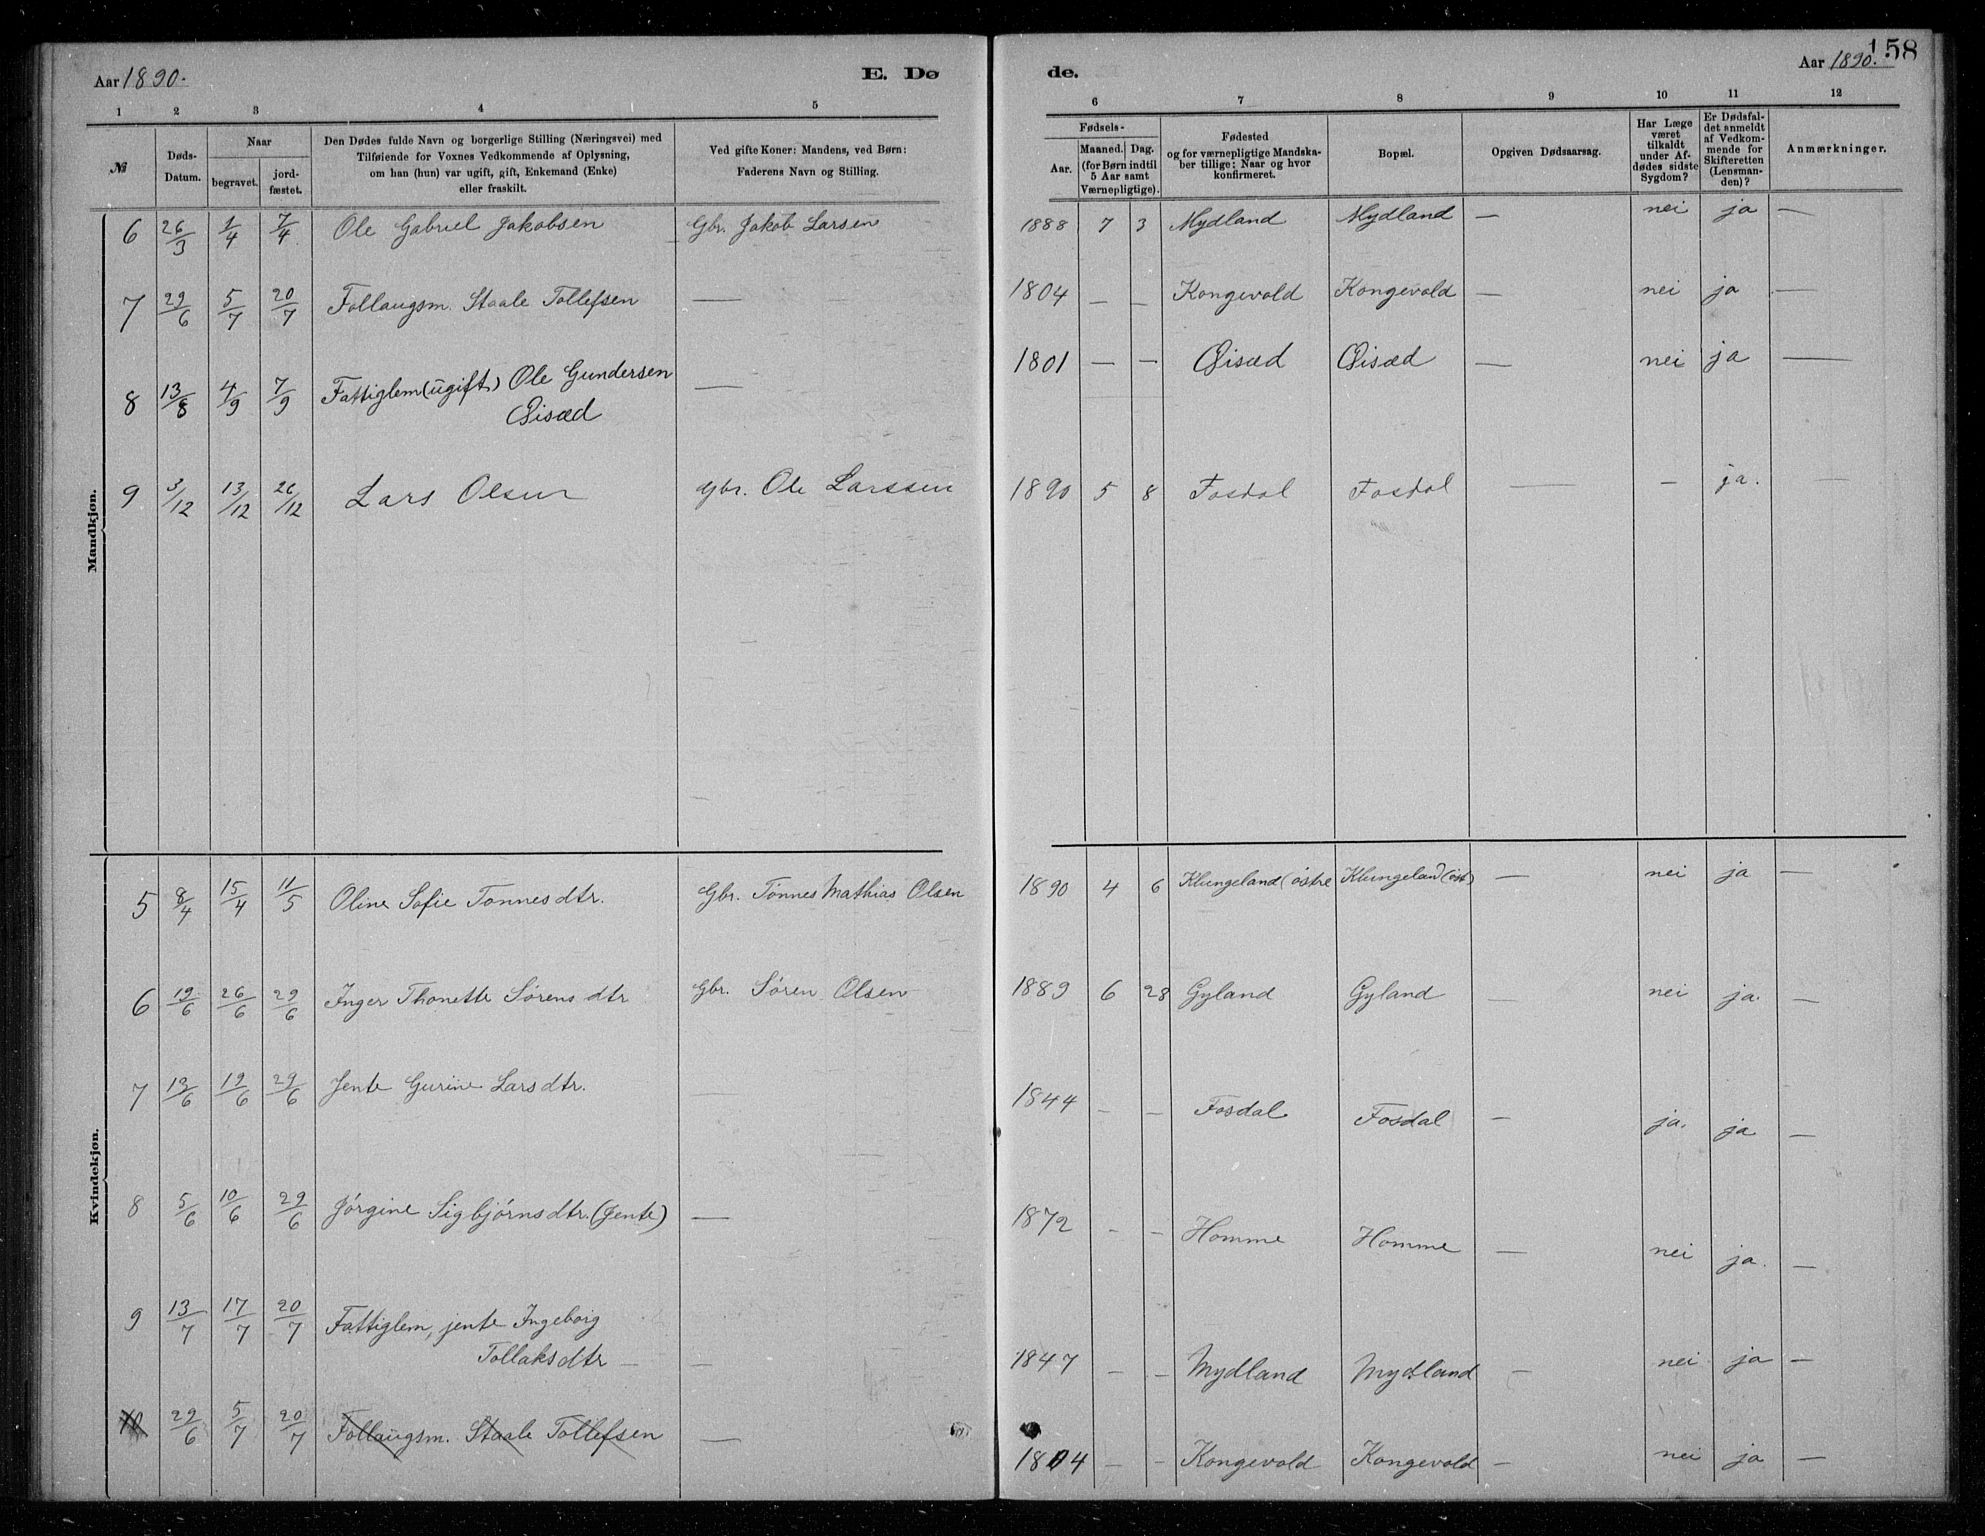 Aar 1890. E. Dø de. Aar 1890. 158
1 2 3 4 5 6 7 8 9 10 11 12
№
Døds-
Datum.
Naar
begravet.
jord-
fæstet.
Den Dødes fulde Navn og borgerlige Stilling (Næringsvei) med
Tilføiende for Voxnes Vedkommende af Oplysning,
om han (hun) var ugift, gift, Enkemand (Enke)
eller fraskilt.
Ved gifte Koner: Mandens, ved Børn:
Faderens Navn og Stilling.
Fødsels-
Aar.
Maaned. Dag.
(for Børn indtil
5 Aar samt
Værnepligtige).
Fødested
og for værnepligtige Mandska-
ber tillige: Naar og hvor
konfirmeret.
Bopæl.
Opgiven Dødsaarsag.
Har Læge
været
tilkaldt
under Af-
dødes sidste
Sygdom?
Er Dødsfal-
det anmeldt
af Vedkom-
mende for
Skifteretten
(Lensman-
den)?
Anmærkninger.
Mandkjøn.
6 26/3 1/4 7/4 Ole Gabriel Jakobsen Gbr. Jakob Larsen 1888 7 3 Mydland Mydland — nei ja —
7 29/6 5/7 20/7 Follaugsm. Staale Tollefsen — 1804 — — Kongevold Kongevold — nei ja —
8 13/8 4/9 7/9 Fattiglem (ugift) Ole Gundersen — 1801 — — Øisæd Øisæd — nei ja —
Øisæd
9 3/12 13/12 26/12 Lars Olsen Gbr. Ole Larssen 1890 5 8 Fosdal Fosdal — — ja. —
Kvindekjøn.
5 8/4 15/4 11/5 Oline Sofie Tønnesdtr. Gbr. Tønnes Mathias Olsen 1890 4 6 Klungeland (østre Klungeland (øst) — nei ja —
6 19/6 26/6 29/6 Inger Thonette Sørensdtr Gbr. Søren Olsen 1889 6 28 Gyland Gyland — nei ja. —
7 13/6 19/6 29/6 Jente Gurine Larsdtr. — 1844 — — Fosdal Fosdal — ja. ja —
8 5/6 10/6 29/6 Jørgine Sigbjørnsdtr. (Jente) — 1872 — — Homme Homme — nei ja. —
9 13/7 17/7 20/7 Fattiglem, jente Ingeborg
Tollaksdtr — — 1847 — — Mydland Mydland — nei ja —
10 29/6 5/7 20/7 Follaugsm. Staale Tollefsen — 1804 — — Kongevold Kongevold — nei ja —